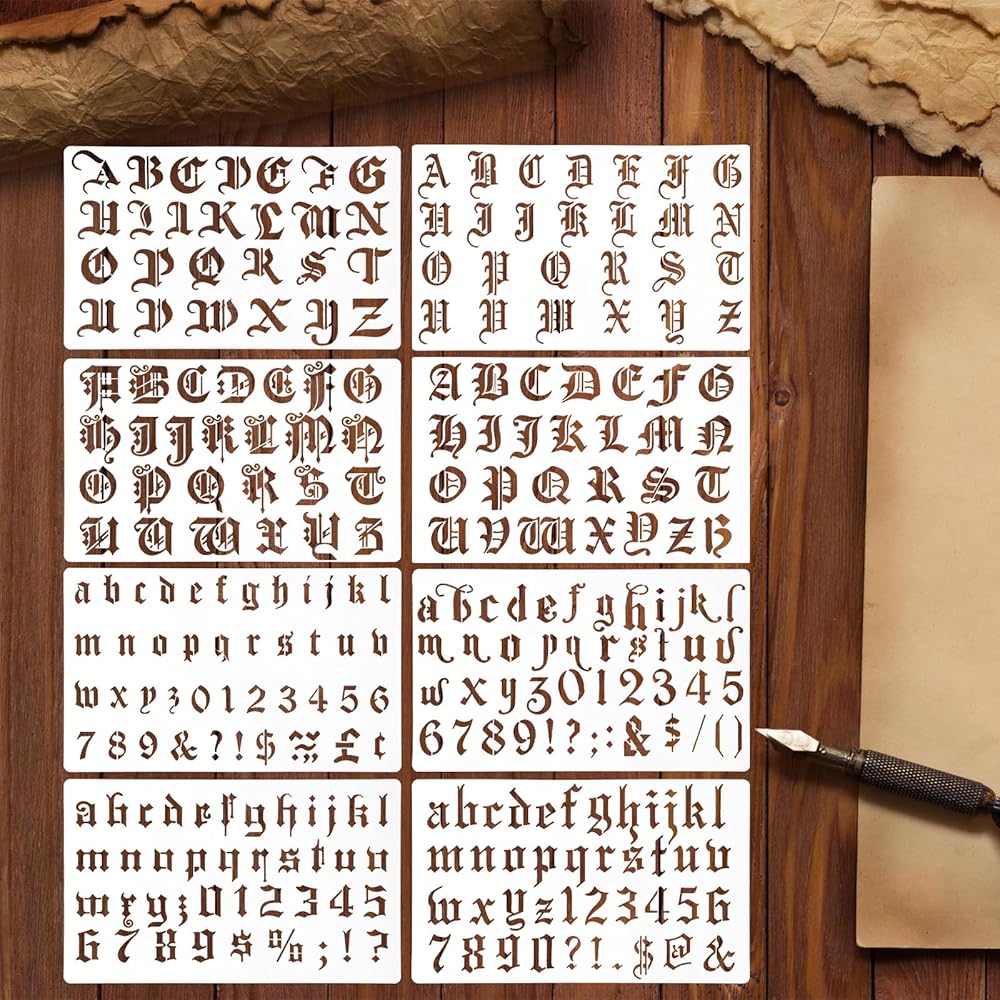 A B C D E F G
H I J K L M N
O P Q R S T
U V W X Y Z
A B C D E F G
H I J K L M N
O P Q R S T
U V W X Y Z
A B C D E F G
H I J K L M N
O P Q R S T
U V W X Y Z
A B C D E F G
H I J K L M N
O P Q R S T
U V W X Y Z
a b c d e f g h i j k l
m n o p q r s t u v
w x y z 0 1 2 3 4 5 6
7 8 9 & ? ! $ £ ¢
a b c d e f g h i j k l
m n o p q r s t u v
w x y z 0 1 2 3 4 5
6 7 8 9 ! ? ; : & $ / ( )
a b c d e f g h i j k l
m n o p q r s t u v
w x y z 0 1 2 3 4 5
6 7 8 9 $ % ; ! ?
a b c d e f g h i j k l
m n o p q r s t u v
w x y z 1 2 3 4 5 6
7 8 9 0 ? ! . $ @ &